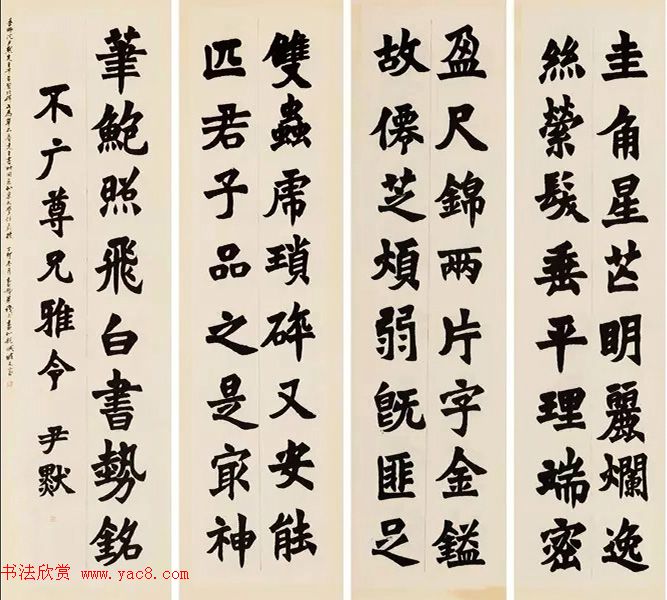 圭角星芒明麗爛逸
絲縈髮垂平理端密
盈尺錦兩片字金鎰
故僊芝煩弱既匪足
雙蟲虎瑣碎又安能
匹君子品之是㝡神
筆鮑照飛白書勢銘
不广尊兄雅令 尹默
书法欣赏 www.yac8.com